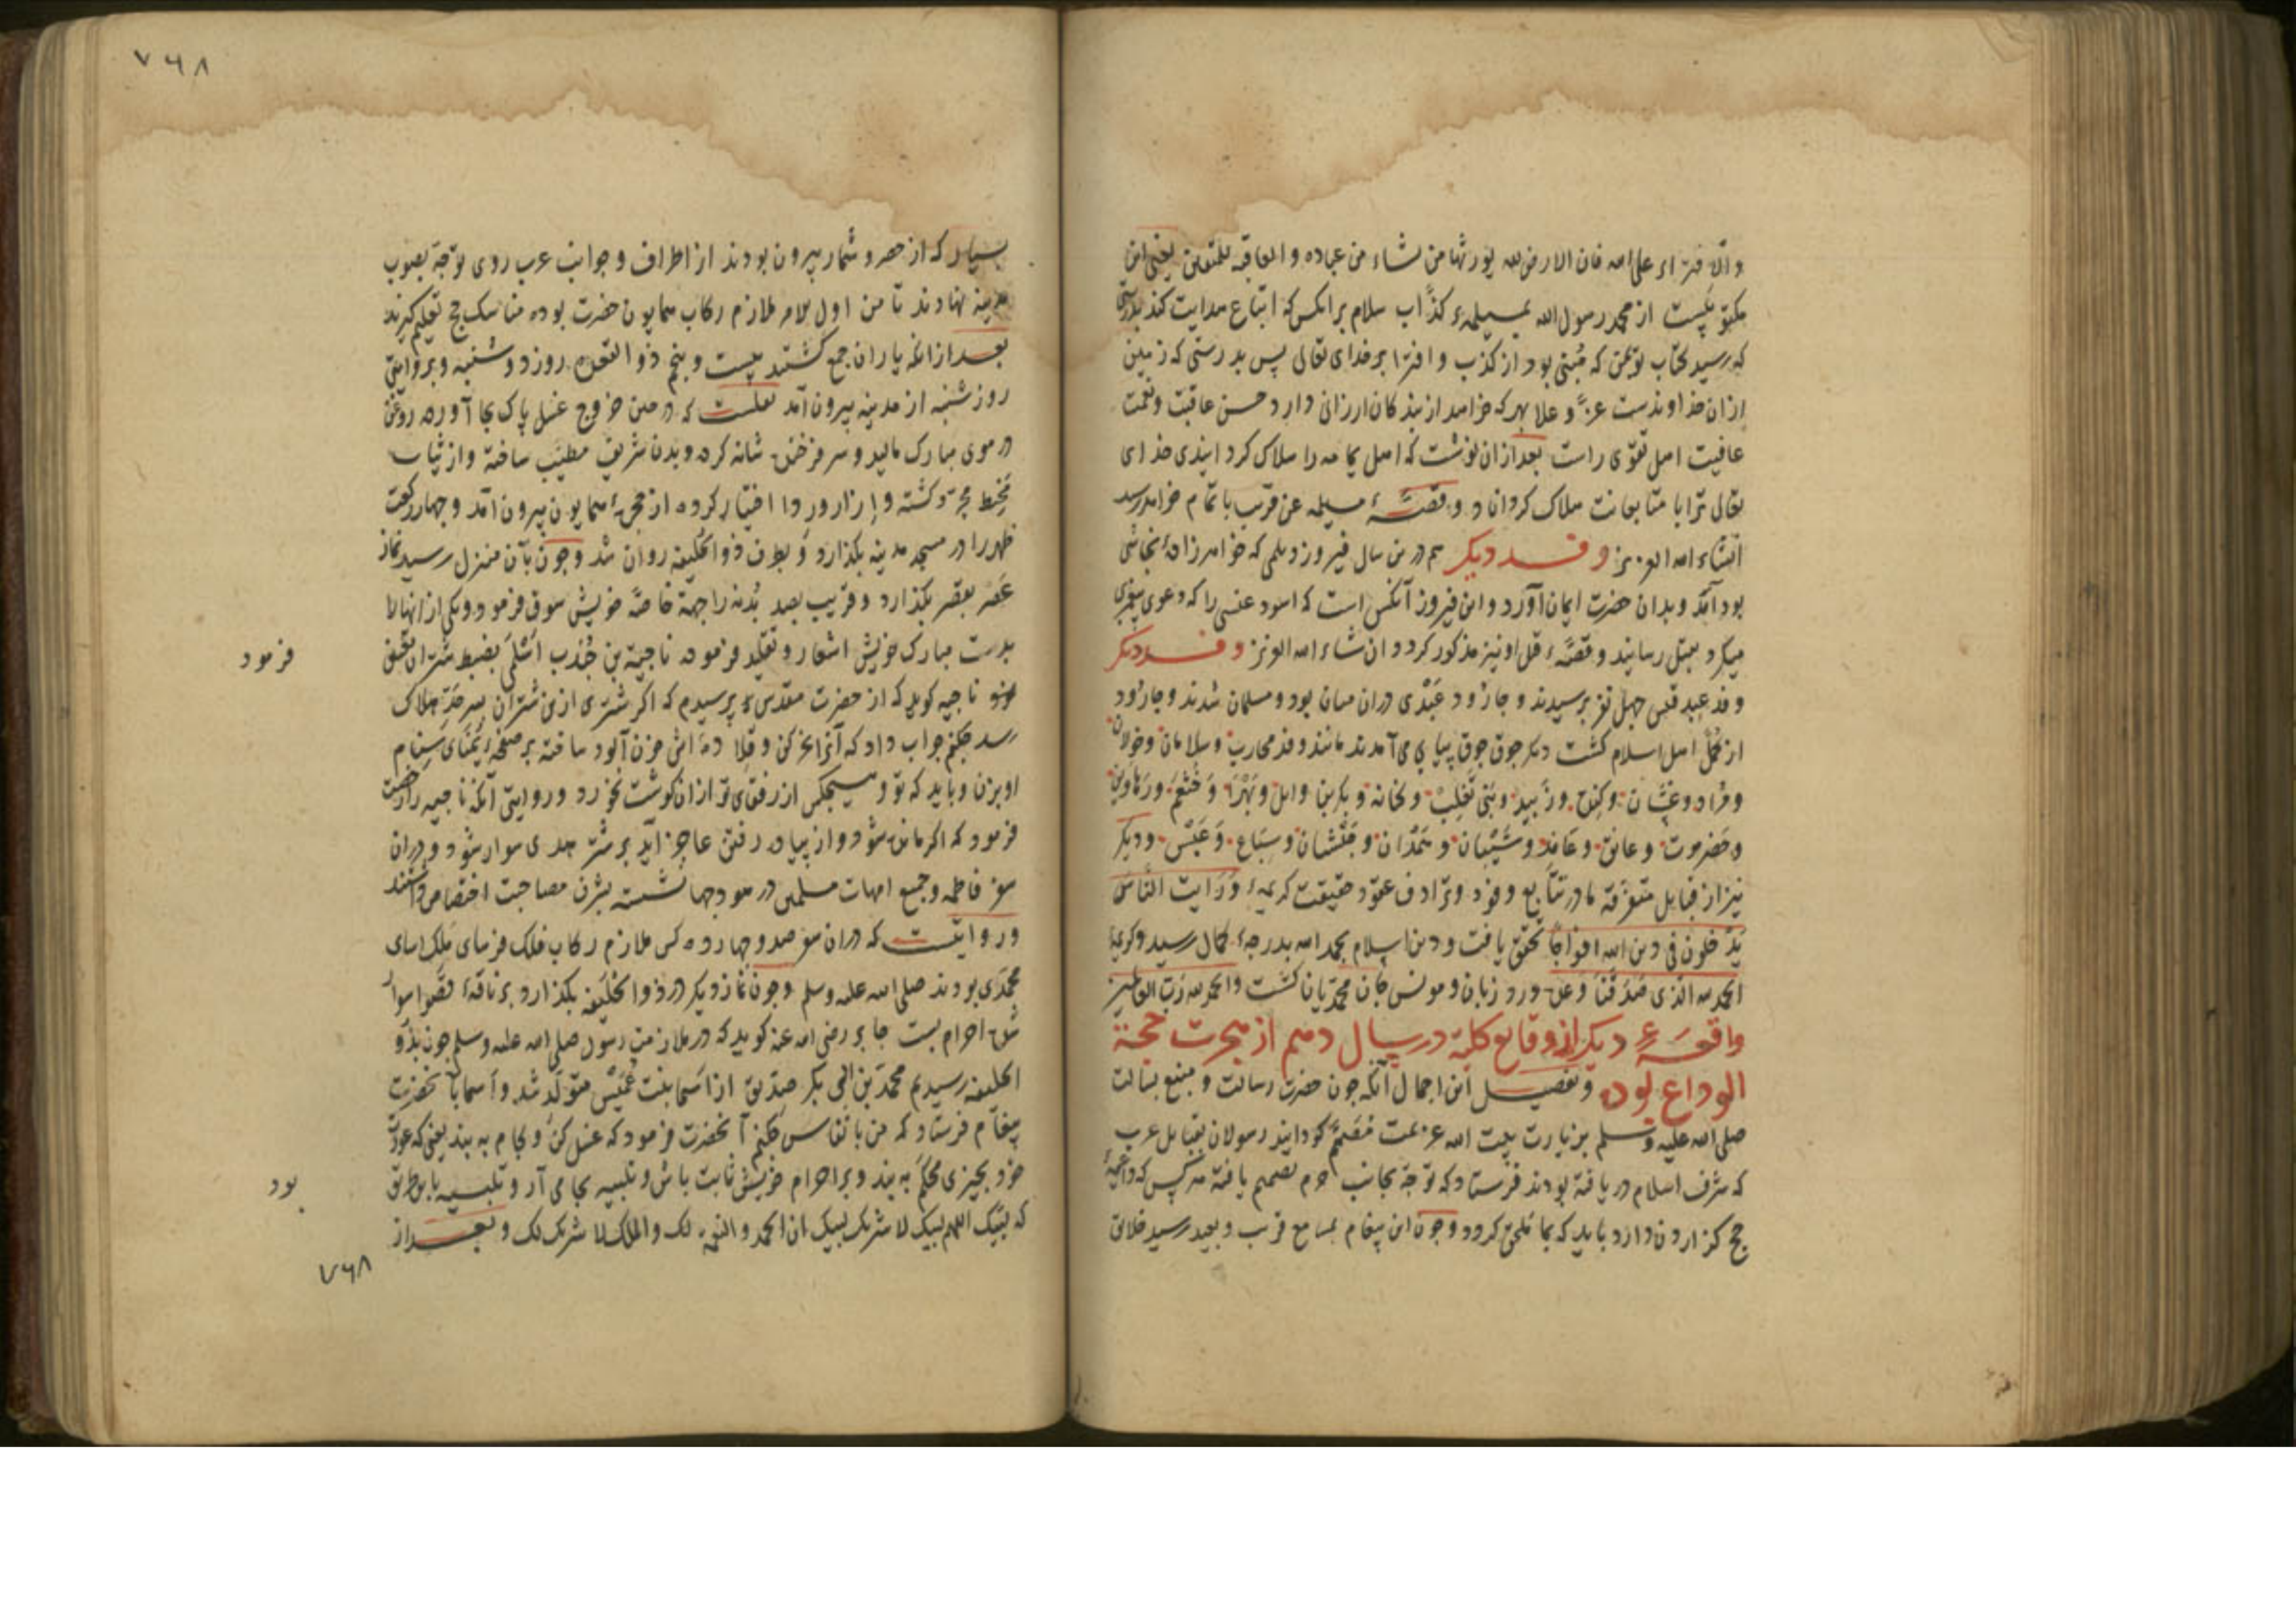 والافتراء علی الله فان الارض لله یورثها من یشاء من عباده و العاقبه للمتقین یعنی این
مکتوبیست از محمد رسول الله بمسیلمهٔ کذّاب سلام بر انکس که اتباع هدایت کند بدرستی
که رسید کتاب تو بمن که مبنی بود از کذب و افترا بر خدای تعالی پس بدرستی که زمین
ازان خداوندست عزّ و علا بهر که خواهد از بندکان ارزانی دارد و حسن عاقبت و نعمت
عافیت اهل تقوی راست بعد ازان نوشت که اهل یمامه را هلاک کرد ایذی خدای
تعالی ترا با متابعانت هلاک کرداناد و قصّهٔ مسیلمه عن قریب باتمام خواهد رسید
انشاء الله العزیز وفد دیکر هم درین سال فیروز دیلمی که خواهر زادهٔ نجاشی
بود آمد و بدان حضرت ایمان آورد و این فیروز آنکس است که اسود عنسی را که دعوی پیغمبری
میکرد بقتل رسانید و قصّهٔ قتل او نیز مذکور کردد ان شاء الله العزیز وفد دیکر
وفد عبد قیس چهل نفر برسیدند و جارود عَبْدی دران میان بود و مسلمان شدند و جارود
از کمّل اهل اسلام کشت دیکر جوق جوق پیاپی می آمدند مانند وفد محارب و سلامان و خولان
و مُراد و غسّان و کِنده و زُبید و بنی تَغلِبْ و کنانه و بکر بن وایل و بَهْرَا و خَثْعَم و رهاویین
و حَضرموت و عانق و عامِد و شَیْبَان و هَمْدان و جَیْشان و سِبَاع و عَبْس و دیکر
نیز از قبایل متفرّقه تا در تتابع وفود و ترادف عقود حقیقت کریمهٔ وَرَایت النّاسَ
یَدْخلون فی دین الله افواجًا تحقق یافت و دین اسلام بحمد الله بدرجهٔ کمال رسید و کریمهٔ
الحمد لله الّذی صَدَقَنَا وَعدَه ورد زبان و مونس جان محمّدیان کشت و الحمد لله ربّ العالمین
واقعهٔ دیکر از وقایع کلیّه در سال دهم از هجرت حجة
الوداع بود و تفصیل این اجمال آنکه چون حضرت رسالت و منبع بسالت
صلی الله علیه وسلم بزیارت بیت الله عزیمت مُصَمَّم کردانید رسولان بقبایل عرب
که شرف اسلام دریافته بودند فرستاد که توجّه بجانب حرم تصمیم یافته هرکس که داعیهٔ
حج کزاردن دارد باید که بما ملحق کردد و چون این پیغام بمسامع قریب و بعید رسید خلایق
۷۶۸
بسیار که از حصر و شمار بیرون بودند از اطراف و جوانب عرب روی توجّه بصوب
مدینه نهادند تا من اول الامر ملازم رکاب همایون حضرت بوده مناسک حج تعلیم کیرند
بعد از انکه یاران جمع کشتند بیست و پنجم ذوالقعده روز دوشنبه و بروایتی
روز شنبه از مدینه بیرون آمد نقلست که در حین خروج غسل پاک بجا آورده روغن
در موی مبارک مالید و سر فرخنده شانه کرده و بدن شریف مطیّب ساخته و از ثیاب
مَخیط مجرّد کشته و اِزار و رِدا اختیار کرده از حجرهٔ همایون بیرون آمد و چهار رکعت
ظهر را در مسجد مدینه بکذارد و بطرف ذوالحلیفه روان شد و چون بآن منزل رسید نماز
عَصْر بقصر بکذارد و قریب بصد بُدنه را جهة خاصّهٔ خویش سوق فرمود و یکی از انها را
بدست مبارک خویش اشعار و تقلید فرموده ناجیة بن جُنْدب اَسْلَمی بضبط شتران تعیّن
فرمود
ناجیه کوید که از حضرت مقدّس پرسیدم که اکر شتری ازین شتران بسرحدّ هلاک
رسد چکنم جواب داد که آنرا نحر کن و قلادهٔ اش خون آلود ساخته بر صفحهٔ یُمنای سنام
او بزن و باید که تو و هیچکس از رفقای تو ازان کوشت نخورد و روایتی آنکه ناجیه را رخصت
فرمود که اکر مانده شود و از پیاده رفتن عاجز آید بر شتر هدی سوار شود و دران
سفر فاطمه و جمیع امهات مسلمین در هودجها نشسته بشرف مصاحبت اختصاص داشتند
و روایتست که دران سفر صد و چهارده کس ملازم رکاب فلک فرسای ملک اسای
محمّدی بودند صلی الله علیه وسلم و چون نماز دیکر در ذوالحلیفه بکذارد بر ناقهٔ قصوا سوار
شده احرام بست جابر رضی الله عنه کوید که در ملازمت رسول صلی الله علیه وسلم چون بذو
الحلیفه رسیدیم محمّد بن ابی بکر صدّیق از اَسما بنت عُمَیْس متولّد شد و اَسما با نحضرت
پیغام فرستاد که من با نفاس چکنم آنحضرت فرمود که غسل کن و لجام به بند یعنی که عورت
خود بچیزی محکم به بند و بر احرام خویش ثابت باش و تلبیه بجا می آر و تلبیه باین طریق
بود
که لبّیک اللهم لبیک لا شریک لک لبیک ان الحمد و النعمه لک و الملک لا شریک لک و بعد از
۷۶۸